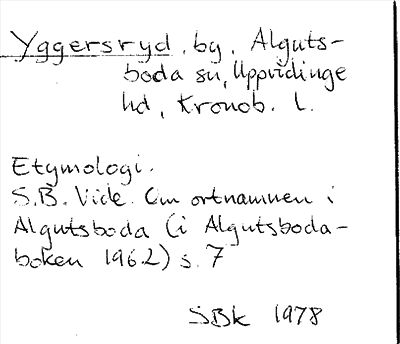 Yggersryd, by, Alguts-
boda sn, Uppvidinge
hd, Kronob. l.
Etymologi.
S.B. Vide. Om ortnamnen i
Algutsboda (i Algutsboda-
boken 1962) s. 7
SBk 1978